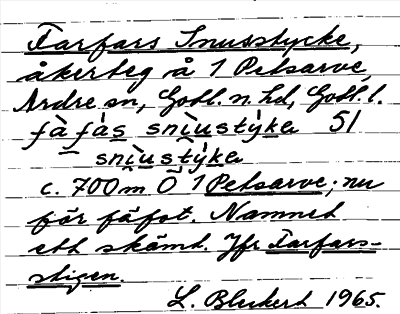 Farfars Snusstycke,
åkerteg å 1 Petsarve,
Ardre sn, Gotl. n. hd, Gotl. l.
fàfàs snìustýka 51
snìustýka
c. 700 m Ö 1 Petsarve; nu
för fåfot. Namnet
ett skämt. Jfr Farfars-
stigen.
L. Blukert 1965.